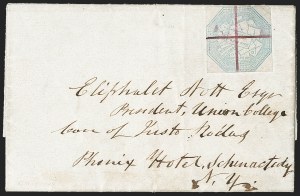 Eliphalet Nott Esqr
President, Union College
Care of
Phenix Hotel, Schenectady
N. Y.